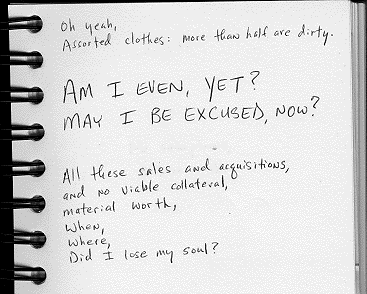 Oh yeah,
Assorted clothes: more than half are dirty.
AM I EVEN, YET?
MAY I BE EXCUSED, NOW?
All these sales and acquisitions,
and no viable collateral,
material worth,
When,
Where,
Did I lose my soul?